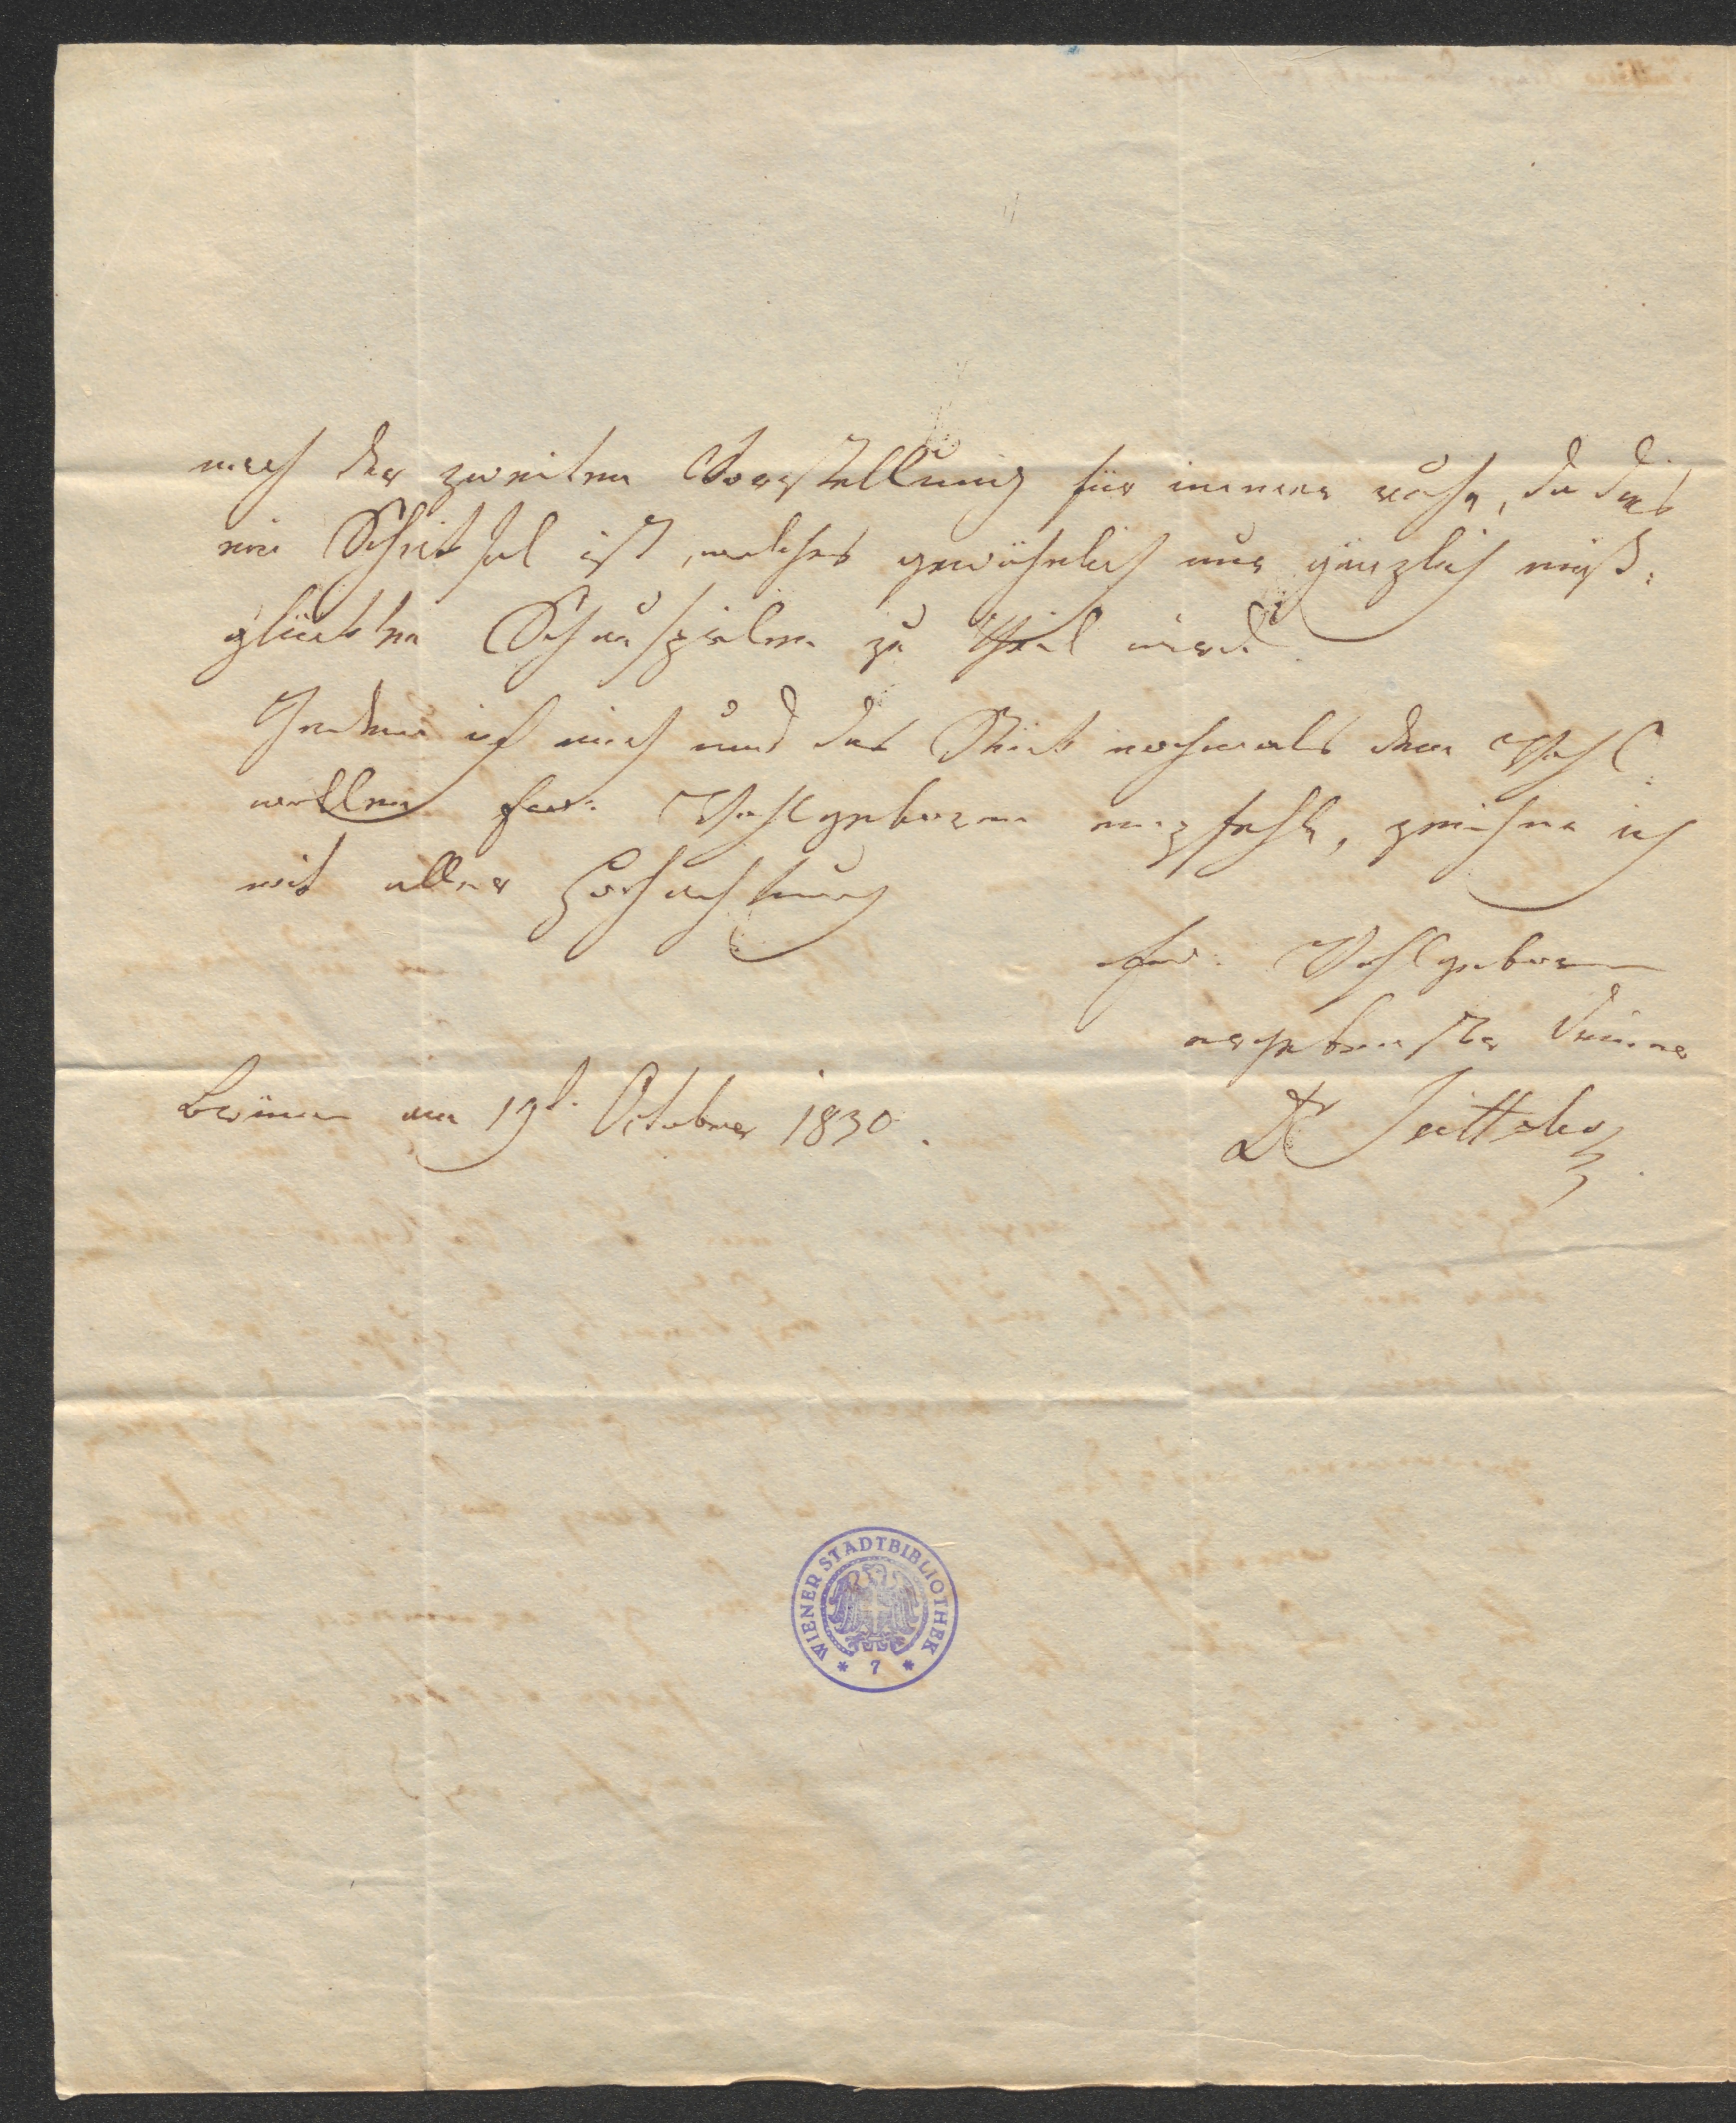 nach der zweiten Vorstellung für immer ruhe, da dies
ein Schicksal ist, welches gewöhnlich nur gänzlich miß:
glückten Schauspielen zu Theil wird.
Indem ich mich und das Stück nochmals dem Wohl:
wollen Euer Wohlgeboren empfehle, zeichne ich
mit aller Hochachtung
Euer Wohlgeboren
ergebenster Diener
Brünn am 19t. October 1830.
Dr Jeitteles
WIENER STADTBIBLIOTHEK
* 7 *